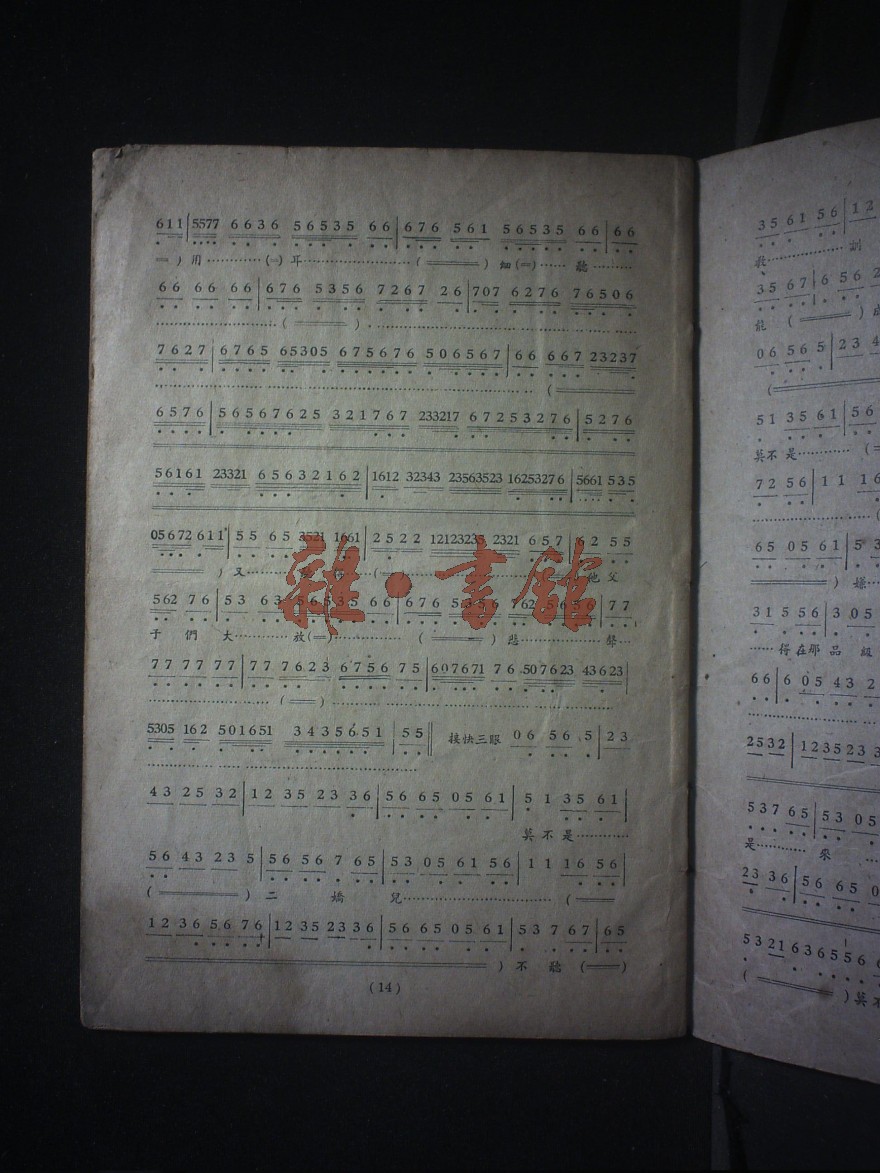 611|5577 6636 56535 66|676 561 56535 66|66
＝）用…………（＝）耳……………………（＝＝＝）細（＝）……聽………
66 66 66|676 5356 7267 26|707 6276 76506
………………………（＝＝＝）………………………………………………
7627|6765 65305 675676 506567|66 667 23237
………………………………………………………………………（＝＝＝
6576|565676 25 321767 233217 67253276|5276
56161 23321 656321 62|1612 32343 23563523 16253276|5661 535
05672 611|55 65 3521 1661|2522 12123235 2321 657|62 55
＝＝＝）又………（＝＝＝）他父
562 76|53 63 56535 66|676 5356 762 5656|77
子們大…………放（＝）……………（＝＝＝）悲………聲…
77 77 77|77 7623 6756 75|607671 76 507623 43623|
………………………（＝＝）………………………………………………
5305 162 501651 3435651|55‖ 接快三眼 06 56 5|23
……………………………………………………
43 25 32|12 35 23 36|56 65 05 61|5 1 35 61|
莫不是…………
56 43 23 5|56 56 7 65|53 05 61 56|11 16 56|
（＝＝＝＝）二嬌兒………………………………（＝＝＝
12 36 56 76|12 35 23 36|56 65 05 61|53 7 67|65
）不聽（＝＝）
（14）
35 61 56|12
教……………訓
35 67|6 56 2
龍（＝＝＝）成
06 56 5|23 4
（
51 35 61|56
莫不是…………（
72 56|11 16
65 05 61|5 3
）嫌…
31 5 56|3 05
……得在那品級
66|6 05 43 2
2532|1235 23 3
537 65|53 05
是…………來
23 36|56 65 0
53 21 6365 56 6
（＝＝＝＝）莫不
雜·書館